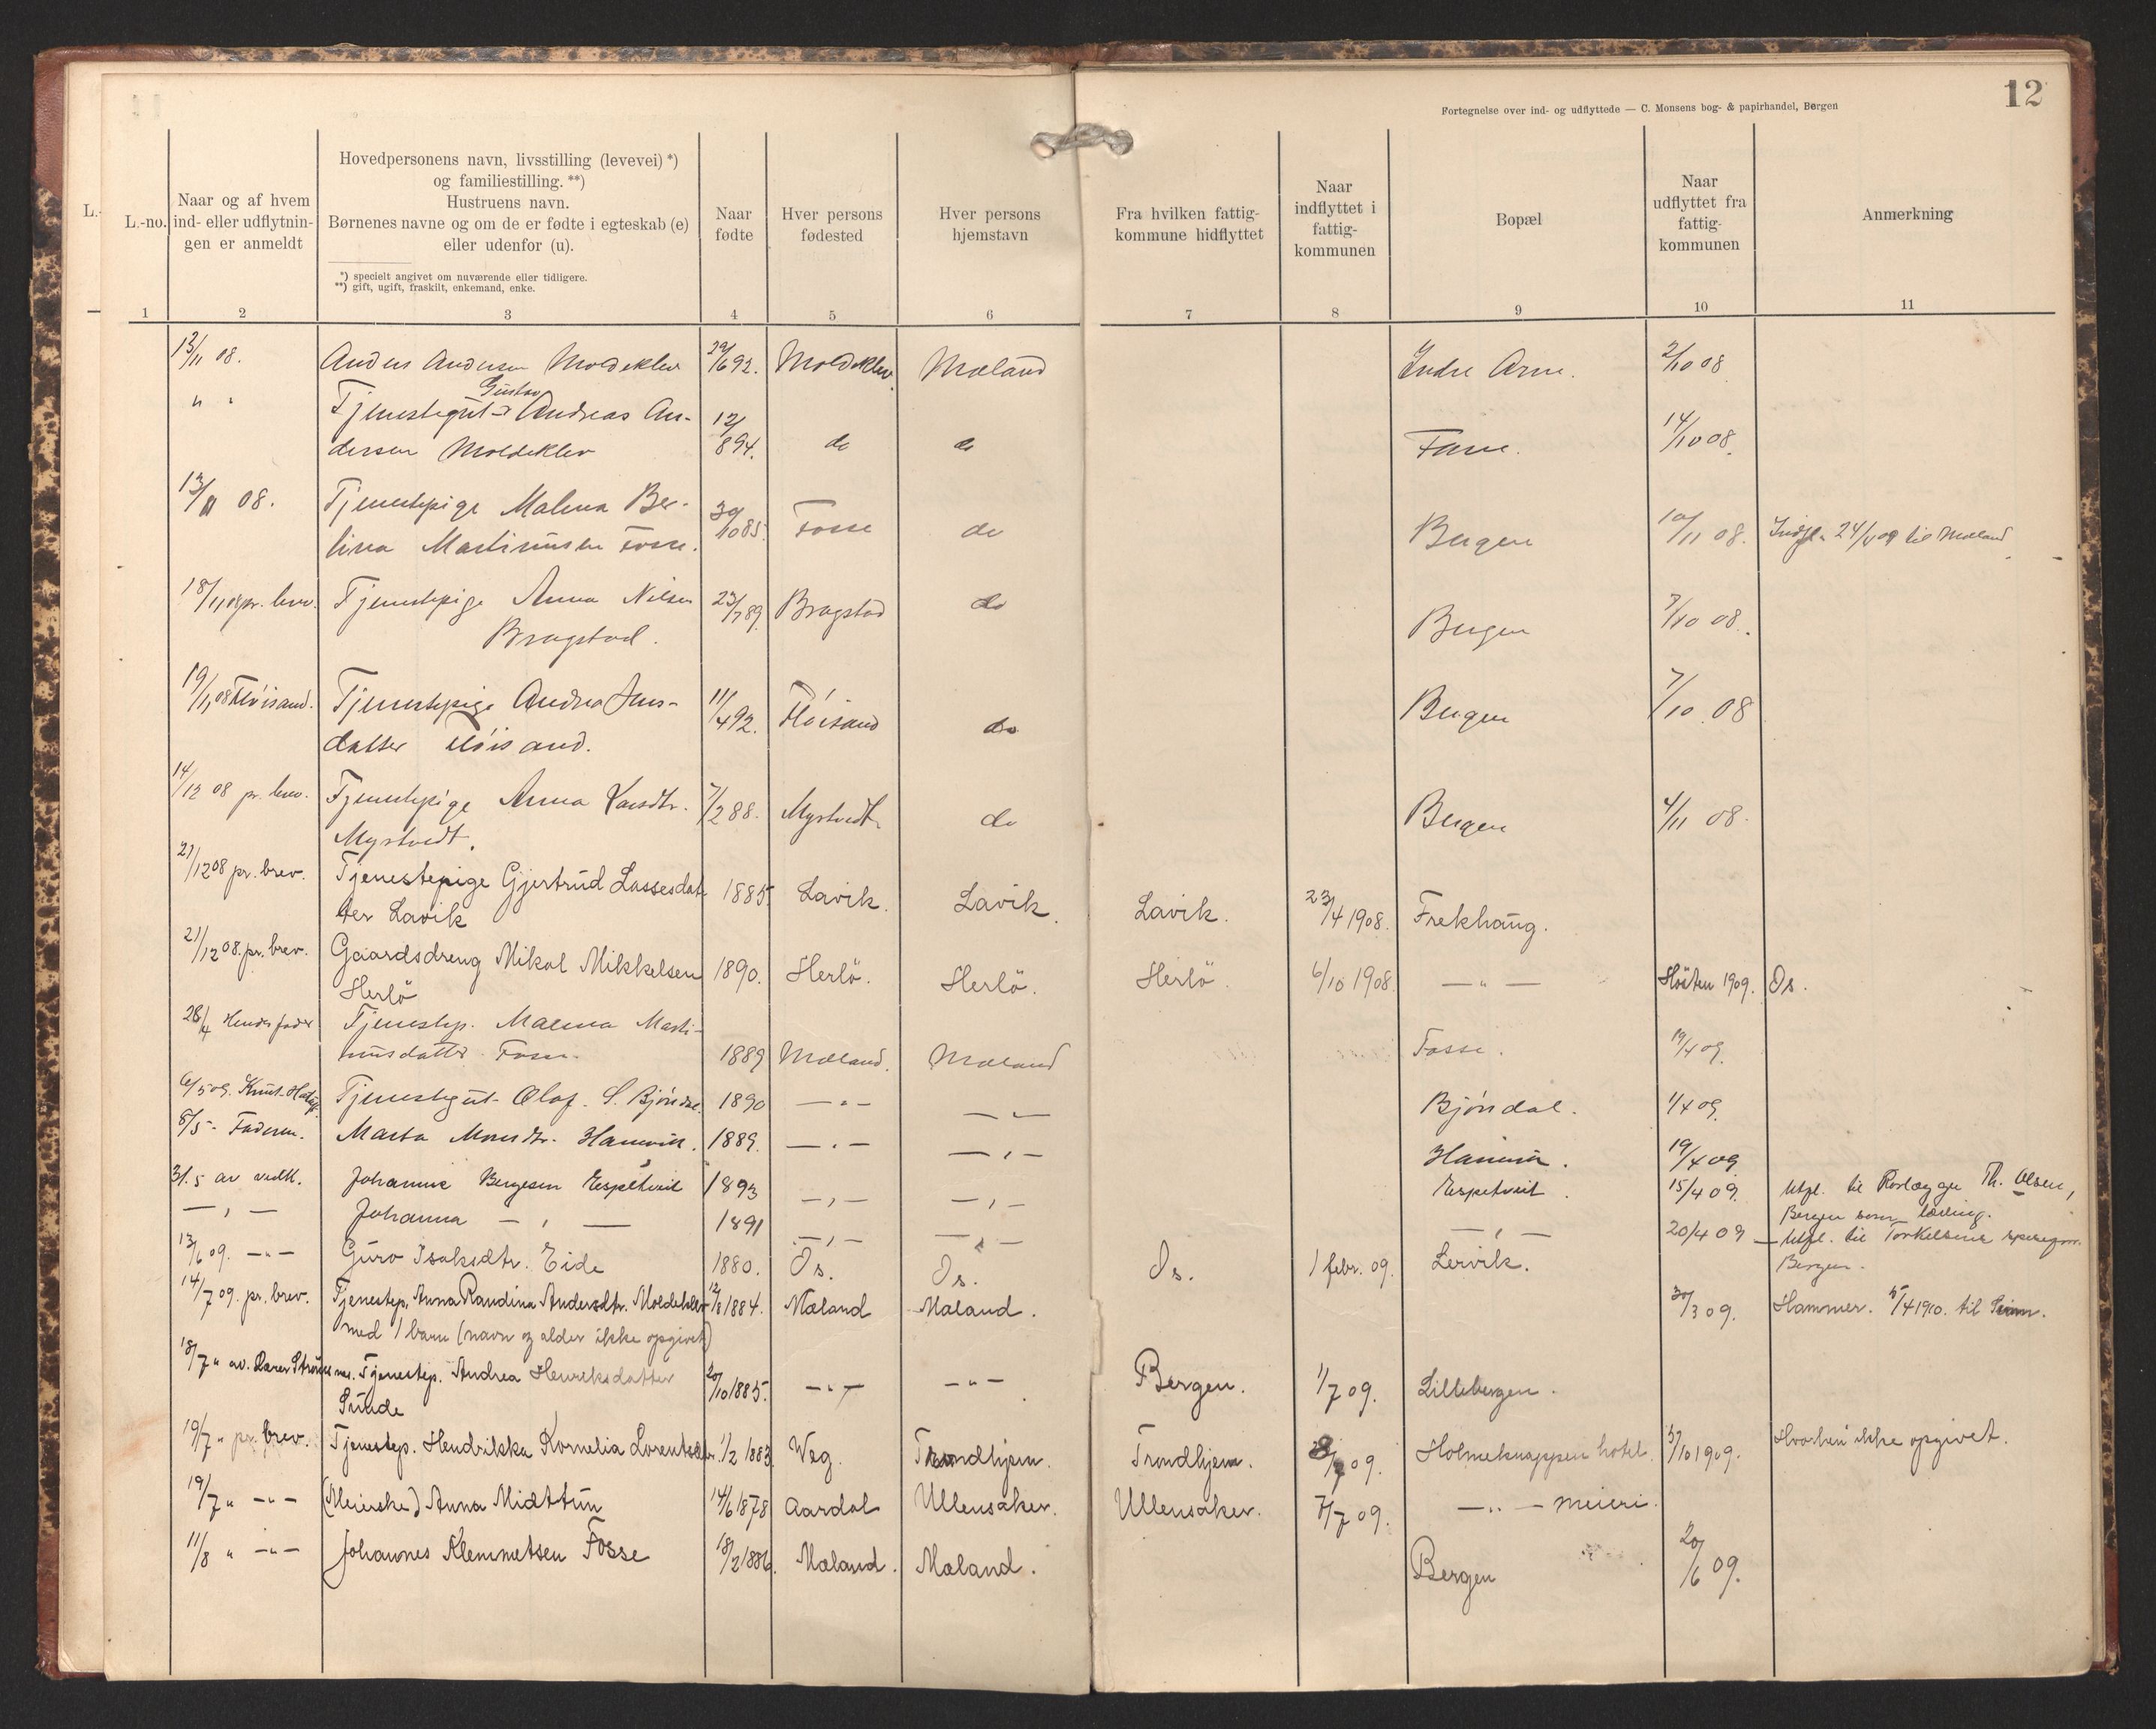 12
Fortegnelse over ind- og udflyttede — C. Monsens bog- & papirhandel, Bergen
L.-
L.-no.
Naar og af hvem
ind- eller udflytnin-
gen er anmeldt
Hovedpersonens navn, livsstilling (levevei) *)
og familiestilling. **)
Hustruens navn.
Børnenes navne og om de er fødte i egteskab (e)
eller udenfor (u).
*) specielt angivet om nuværende eller tidligere.
**) gift, ugift, fraskilt, enkemand, enke.
Naar
fødte
Hver persons
fødested
Hver persons
hjemstavn
Fra hvilken fattig-
kommune hidflyttet
Naar
indflyttet i
fattig-
kommunen
Bopæl
Naar
udflyttet fra
fattig-
kommunen
Anmerkning
1 2 3 4 5 6 7 8 9 10 11
13/11 08. Anders Andersen Moldeklev 29/6 92. Moldeklev Mæland Indre Arne. 2/10 08
" " Tjenestegut Gustav Andreas An-
dersen Moldeklev 12/8 94. do do Fosse. 14/10 08.
13/11 08. Tjenestepige Malena Ber-
lina Martinusen Fosse. 30/10 85. Fosse do Bergen 10/11 08. Indfl. 24/4 09 til Mæland
18/11 08 pr. brev. Tjenestepige Anna Nilsen
Bragstad. 23/7 89. Bragstad do Bergen 7/10 08.
19/11 08 Fløisand. Tjenestepige Andrea Jens-
datter Fløisand. 11/4 92. Fløisand do Bergen 7/10 08
14/12 08 pr. brev. Tjenestepige Anna Larsdtr.
Myrtvedt. 7/2 88. Myrtvedt do Bergen 4/11 08.
21/12 08 pr. brev. Tjenestepige Gjertrud Lassesdat-
ter Lavik 1885 Lavik. Lavik. Lavik. 23/4 1908. Frekhaug.
21/12 08. pr. brev. Gaardsdreng Mikal Mikkelsen
Herlö 1890. Herlö. Herlö. Herlö. 6/10 1908. — " — Hösten 1909. Os.
28/4 Hendes fader Tjenestep. Malena Marti-
nusdatter Fosse. 1889 Mæland. Mæland Fosse. 19/4 09.
6/5 09. Knut Tjenestegut Olaf. S. Bjöndal. 1890 — " — — " — Bjöndal. 1/4 09.
8/5 - Faderen. Marta Monsdtr. Hanevik. 1889. — " — — " — Hanevik. 19/4 09.
31.5 av vedk. Johannes Bergesen Espetveit 1893 — " — — " — Espetveit. 15/4 09. Utfl. til Rørlægger Th. Olsen,
Bergen som lærling.
— " — Johanna — " — 1891 — " — — " — — " — 20/4 09 — Utfl. til Torkelsens
Bergen.
13/6 09. — " — Guro Isaksdtr. Eide 1880. Os. Os. Os. 1 febr. 09. Lervik.
14/7 09. pr. brev. Tjenestep. Anna Randina Andersdtr. Moldeklev
med 1 barn (navn og alder ikke opgivet) 12/8 1884. Mæland Mæland. 30/3 09. Hammer. 5/4 1910. til
18/7 " av. Lærer Strömsnes. Tjenestep. Andrea Henriksdatter
Sunde 20/10 1885. — " — — " — Bergen. 1/7 09. Lillebergen.
19/7 " pr. brev. Tjenestep. Hendrikka Kornelia Lorentsdtr. 1/2 1883 Weg. Trondhjem. Trondhjem. 09. Holmeknappen hotel 3/10 1909. Hvorhen ikke opgivet.
19/7 " — " — (Meierske) Anna Midttun 14/6 1878 Aardal Ullensaker. Ullensaker. 7/7 09. — " — meieri.
11/8 " — " — Johannes Klemmetsen Fosse 18/2 1886. Mæland. Mæland. Bergen 20/6 09.